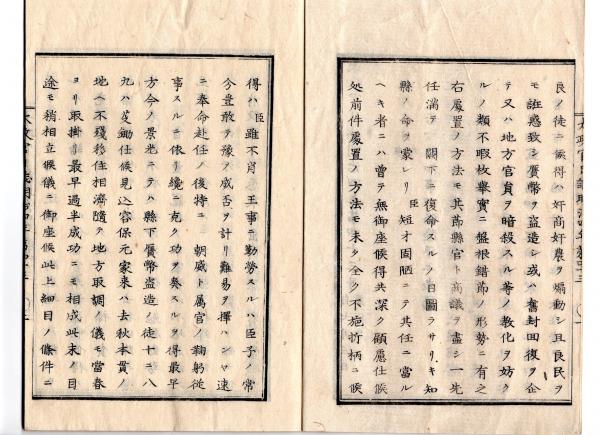 良ノ徒ニ候得ハ奸商奸農ヲ煽動シ且良民ヲ
モ誑惑致シ贋幣ヲ盗造シ或ハ舊封回復ヲ企
テ又ハ地方官員ヲ暗殺スル等ノ教化ヲ妨ク
ルノ類不暇枚擧實ニ盤根錯節ノ形勢ニ有之
右處置ノ方法モ其節縣官ト商議ヲ盡シ一先
任満テ 闕下ニ復命スルノ日圖ラサリキ知
縣ノ命ヲ蒙レリ臣短才固陋ニテ其任ニ當ル
ヘキ者ニハ曽テ無御座候得共深ク顧慮仕候
処前件處置ノ方法モ未タ全ク不施折柄ニ候
得ハ臣雖不肖 王事ニ勤労スルハ臣子ノ常
今豈敢テ豫メ成否ヲ計リ難易ヲ擇ハンヤ速
ニ奉命赴任ノ後持ニ 朝威ト属官ノ鞠躬従
事スルニ依リ纔ニ克ク功ヲ奏スルヲ得最早
方今ノ景光ニテハ縣下贋幣盗造ノ徒十ニ八
九ハ芟鋤仕候見込容保元家来ハ去秋本貫ノ
地ヘ不残移住相濟随テ地方取調ノ儀モ當春
ヨリ取掛リ最早過半成功ニモ相成此末ノ目
途モ稍相立候儀ニ御座候此上細目ノ條件ニ